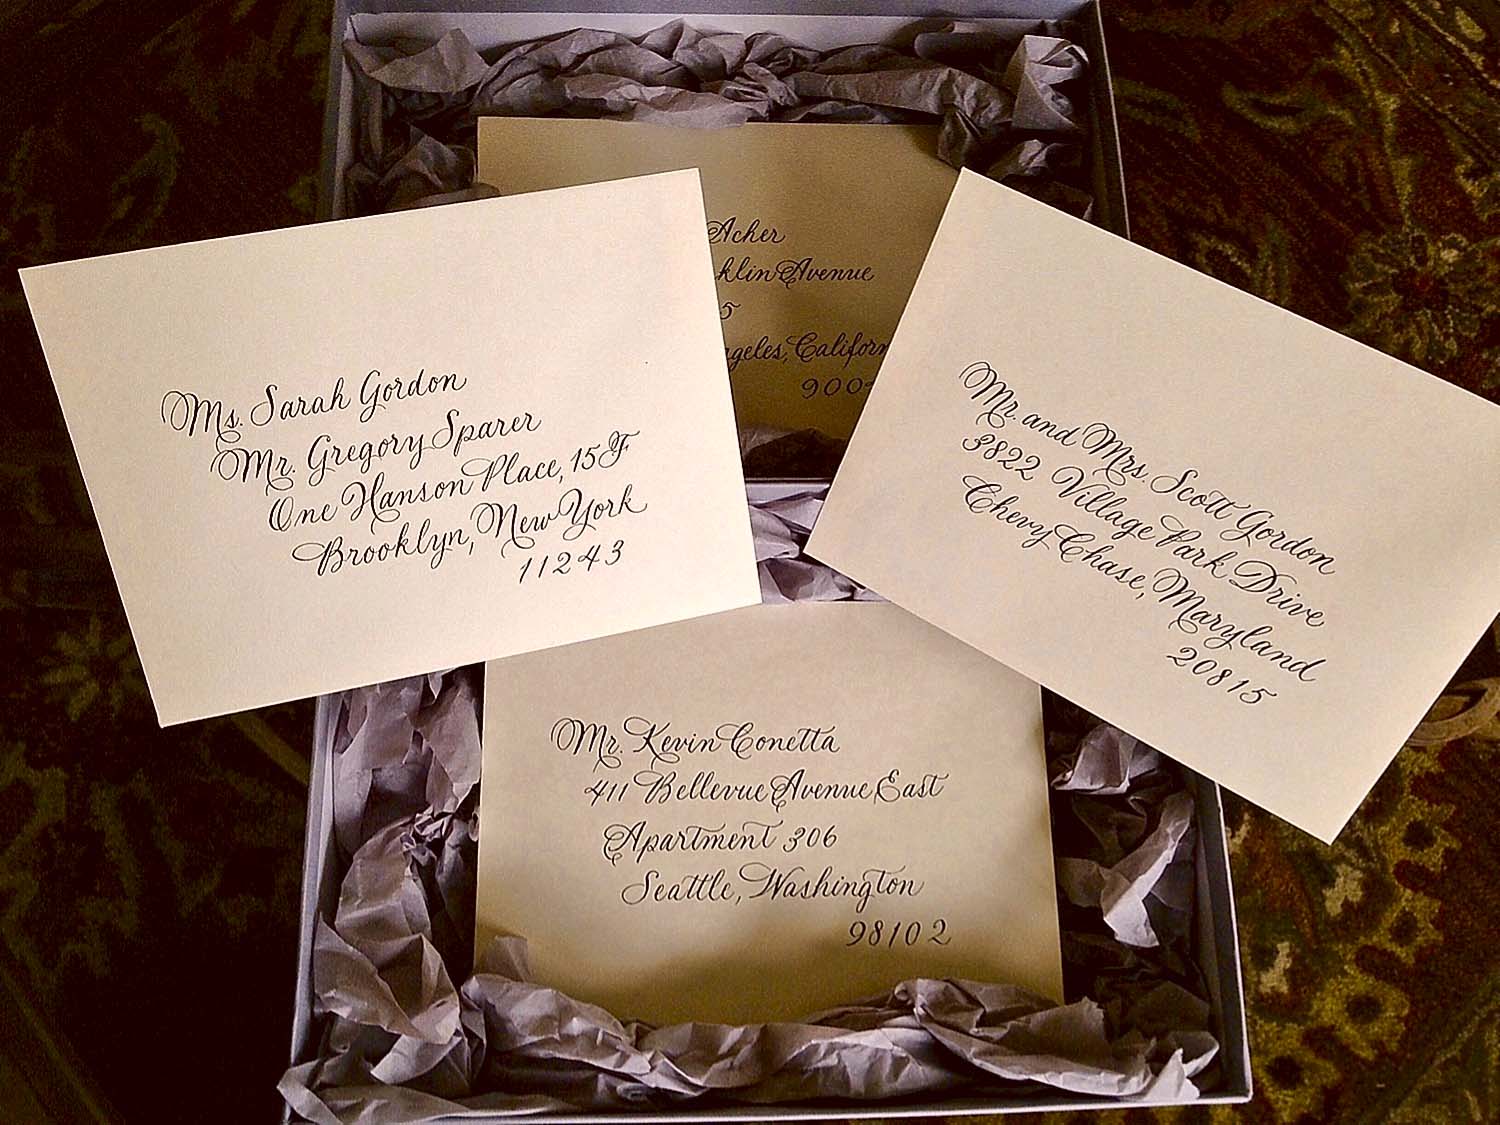 Acher
Avenue
5
Ms. Sarah Gordon
Mr. Gregory Sparer
One Hanson Place, 15F
Brooklyn, New York
11243
Mr. and Mrs. Scott Gordon
3822 Village Park Drive
Chevy Chase, Maryland
20815
Mr. Kevin Conetta
411 Bellevue Avenue East
Apartment 306
Seattle, Washington
98102